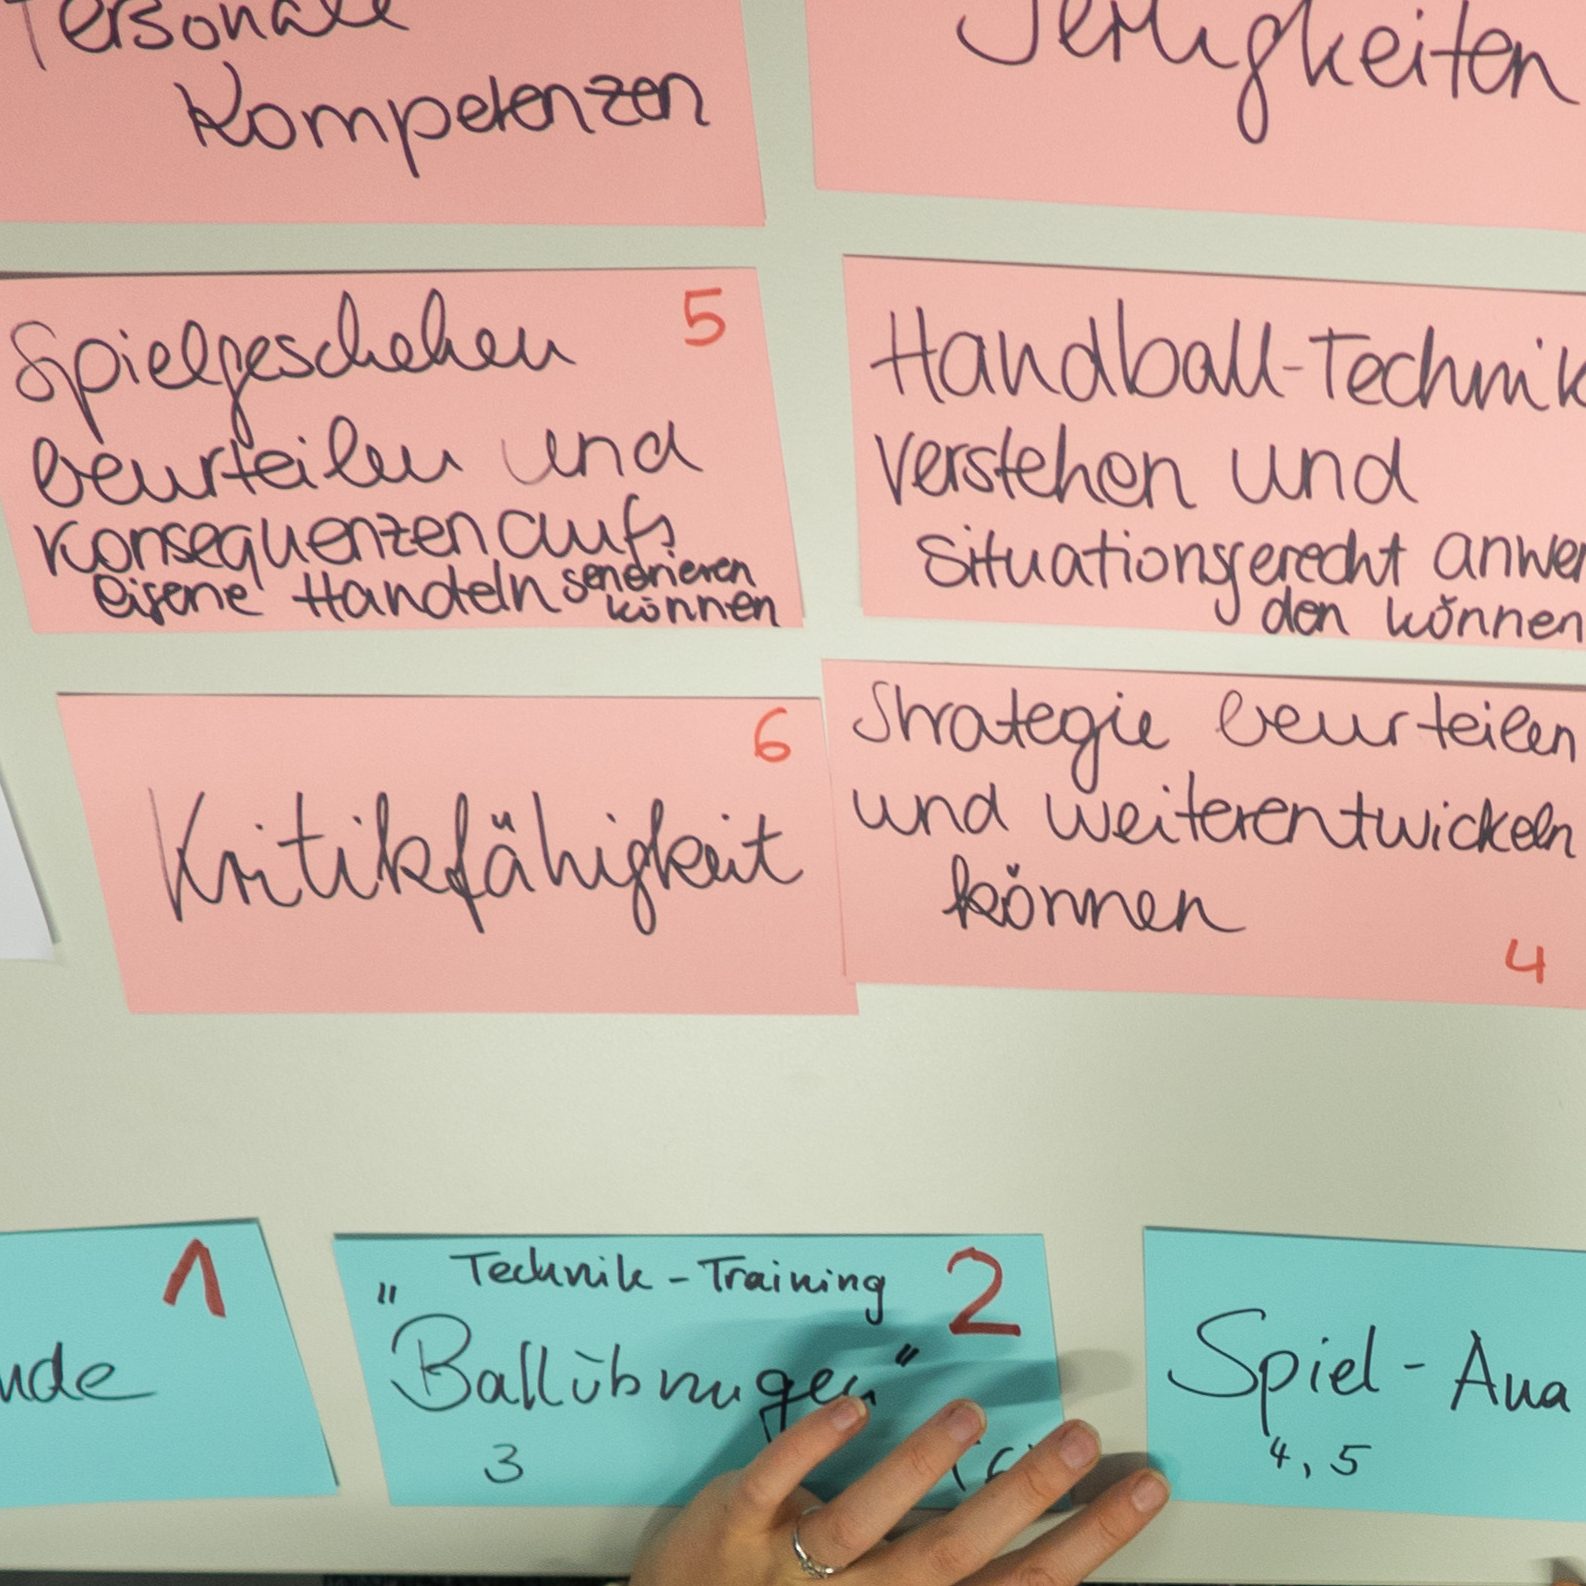 Personale
Kompetenzen
Fertigkeiten
5
Spielgeschehen
beurteilen und
Konsequenzen aufs
eigene Handeln generieren
können
Handball-Technik
verstehen und
situationsgerecht anwen
den können
6
Kritikfähigkeit
Strategie beurteilen
und weiterentwickeln
können
4
1
nde
Technik-Training
2
"Ballübungen"
3
Spiel-Ana
4, 5